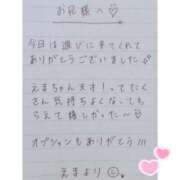 お兄様へ♡
今日は遊びに来てくれて
ありがとうございました
えまちゃん天才！ってたく
さん気持ちよくなっても
らえて嬉しかった〜♡
オプションもありがとう!!!
えまより